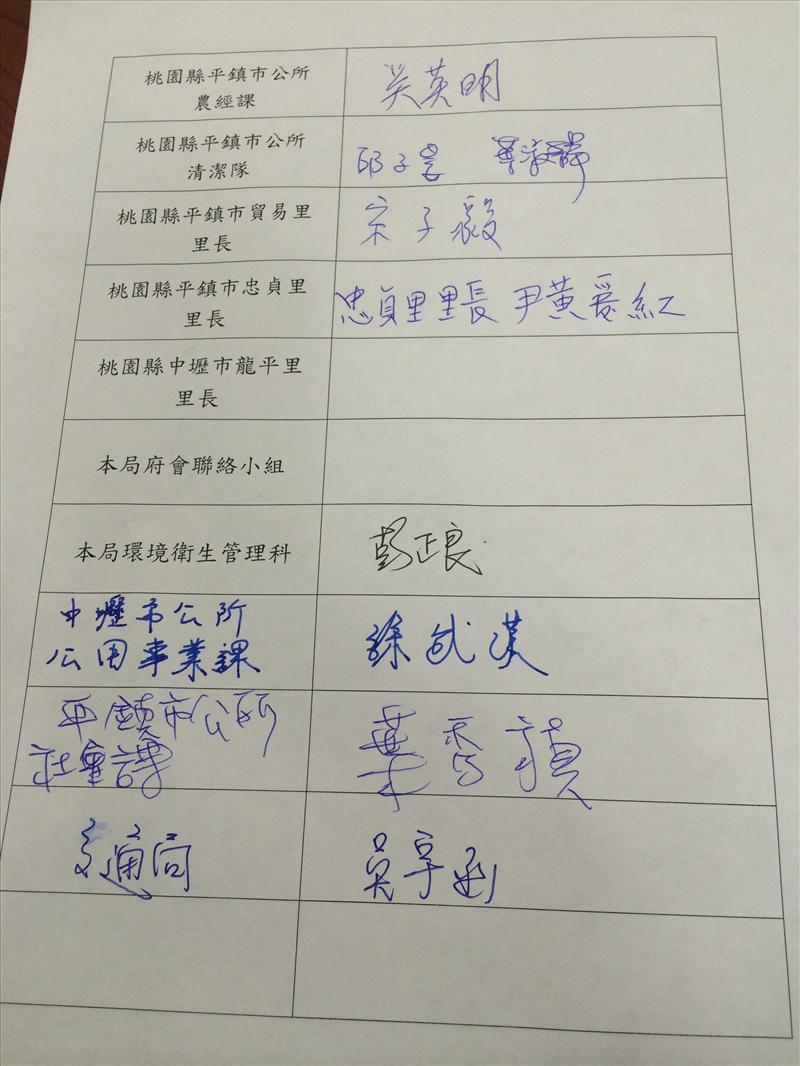 桃園縣平鎮市公所
農經課
吳英明
桃園縣平鎮市公所
清潔隊
邱子
桃園縣平鎮市貿易里
里長
宋子毅
桃園縣平鎮市忠貞里
里長
忠貞里里長 尹黃爱紅
桃園縣中壢市龍平里
里長
本局府會聯絡小組
本局環境衛生管理科
彭正良
中壢市公所
公用事業課
徐武漢
平鎮市公所
社會課
葉秀禎
交通局
吳宇